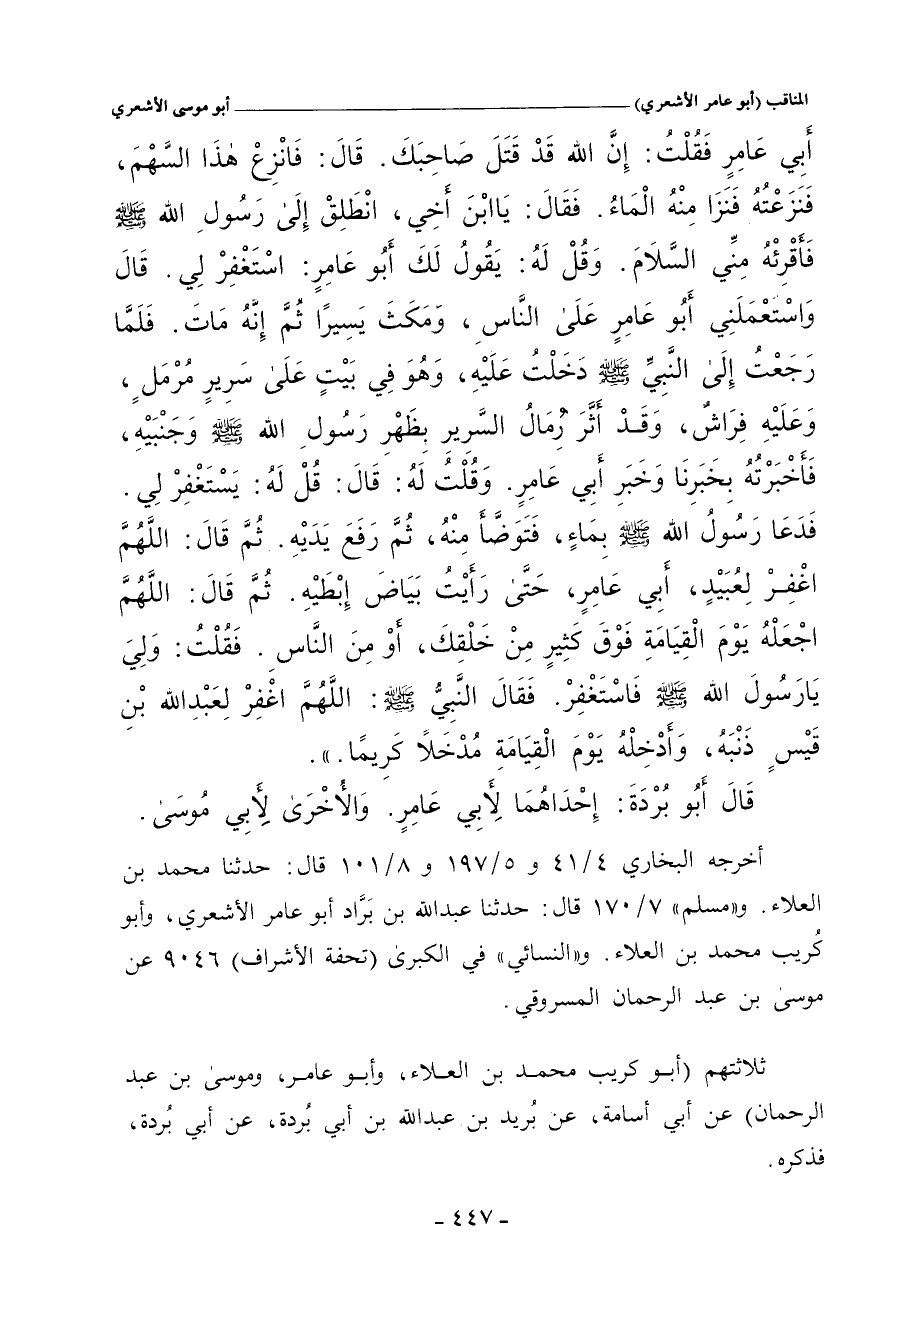 المناقب (أبو عامر الأشعري) ــــــــــــــــــــ أبو موسى الأشعري
أَبِي عَامِرٍ فَقُلْتُ: إِنَّ الله قَدْ قَتَلَ صَاحِبَكَ. قَالَ: فَانْزِعْ هٰذَا السَّهْمَ،
فَنَزَعْتُهُ فَنَزَا مِنْهُ الْمَاءُ. فَقَالَ: يَاابْنَ أَخِي، انْطَلِقْ إِلَىٰ رَسُولِ الله ﷺ
فَأَقْرِئْهُ مِنِّي السَّلَامَ. وَقُلْ لَهُ: يَقُولُ لَكَ أَبُو عَامِرٍ: اسْتَغْفِرْ لِي. قَالَ
وَاسْتَعْمَلَنِي أَبُو عَامِرٍ عَلَىٰ النَّاسِ، وَمَكَثَ يَسِيرًا ثُمَّ إِنَّهُ مَاتَ. فَلَمَّا
رَجَعْتُ إِلَىٰ النَّبِيِّ ﷺ دَخَلْتُ عَلَيْهِ، وَهُوَ فِي بَيْتٍ عَلَىٰ سَرِيرٍ مُرْمَلٍ،
وَعَلَيْهِ فِرَاشٌ، وَقَدْ أَثَّرَ رُمَالُ السَّرِيرِ بِظَهْرِ رَسُولِ الله ﷺ وَجَنْبَيْهِ،
فَأَخْبَرْتُهُ بِخَبَرِنَا وَخَبَرِ أَبِي عَامِرٍ. وَقُلْتُ لَهُ: قَالَ: قُلْ لَهُ: يَسْتَغْفِرْ لِي.
فَدَعَا رَسُولُ الله ﷺ بِمَاءٍ، فَتَوَضَّأَ مِنْهُ، ثُمَّ رَفَعَ يَدَيْهِ. ثُمَّ قَالَ: اللَّهُمَّ
اغْفِرْ لِعُبَيْدٍ، أَبِي عَامِرٍ، حَتَّىٰ رَأَيْتُ بَيَاضَ إِبْطَيْهِ. ثُمَّ قَالَ: اللَّهُمَّ
اجْعَلْهُ يَوْمَ الْقِيَامَةِ فَوْقَ كَثِيرٍ مِنْ خَلْقِكَ، أَوْ مِنَ النَّاسِ. فَقُلْتُ: وَلِيَ
يَارَسُولَ الله ﷺ فَاسْتَغْفِرْ. فَقَالَ النَّبِيُّ ﷺ: اللَّهُمَّ اغْفِرْ لِعَبْدِالله بْنِ
قَيْسٍ ذَنْبَهُ، وَأَدْخِلْهُ يَوْمَ الْقِيَامَةِ مُدْخَلًا كَرِيمًا.».
قَالَ أَبُو بُرْدَةَ: إِحْدَاهُمَا لِأَبِي عَامِرٍ. وَالْأُخْرَىٰ لِأَبِي مُوسَىٰ.
أخرجه البخاري ٤١/٤ و ١٩٧/٥ و ١٠١/٨ قال: حدثنا محمد بن
العلاء. و«مسلم» ١٧٠/٧ قال: حدثنا عبدالله بن بَرَّاد أبو عامر الأشعري، وأبو
كُريب محمد بن العلاء. و«النسائي» في الكبرىٰ (تحفة الأشراف) ٩٠٤٦ عن
موسىٰ بن عبد الرحمان المسروقي.
ثلاثتهم (أبو كريب محمد بن العلاء، وأبو عامر، وموسىٰ بن عبد
الرحمان) عن أبي أسامة، عن بُريد بن عبدالله بن أبي بُردة، عن أبي بُردة،
فذكره.
- ٤٤٧ -